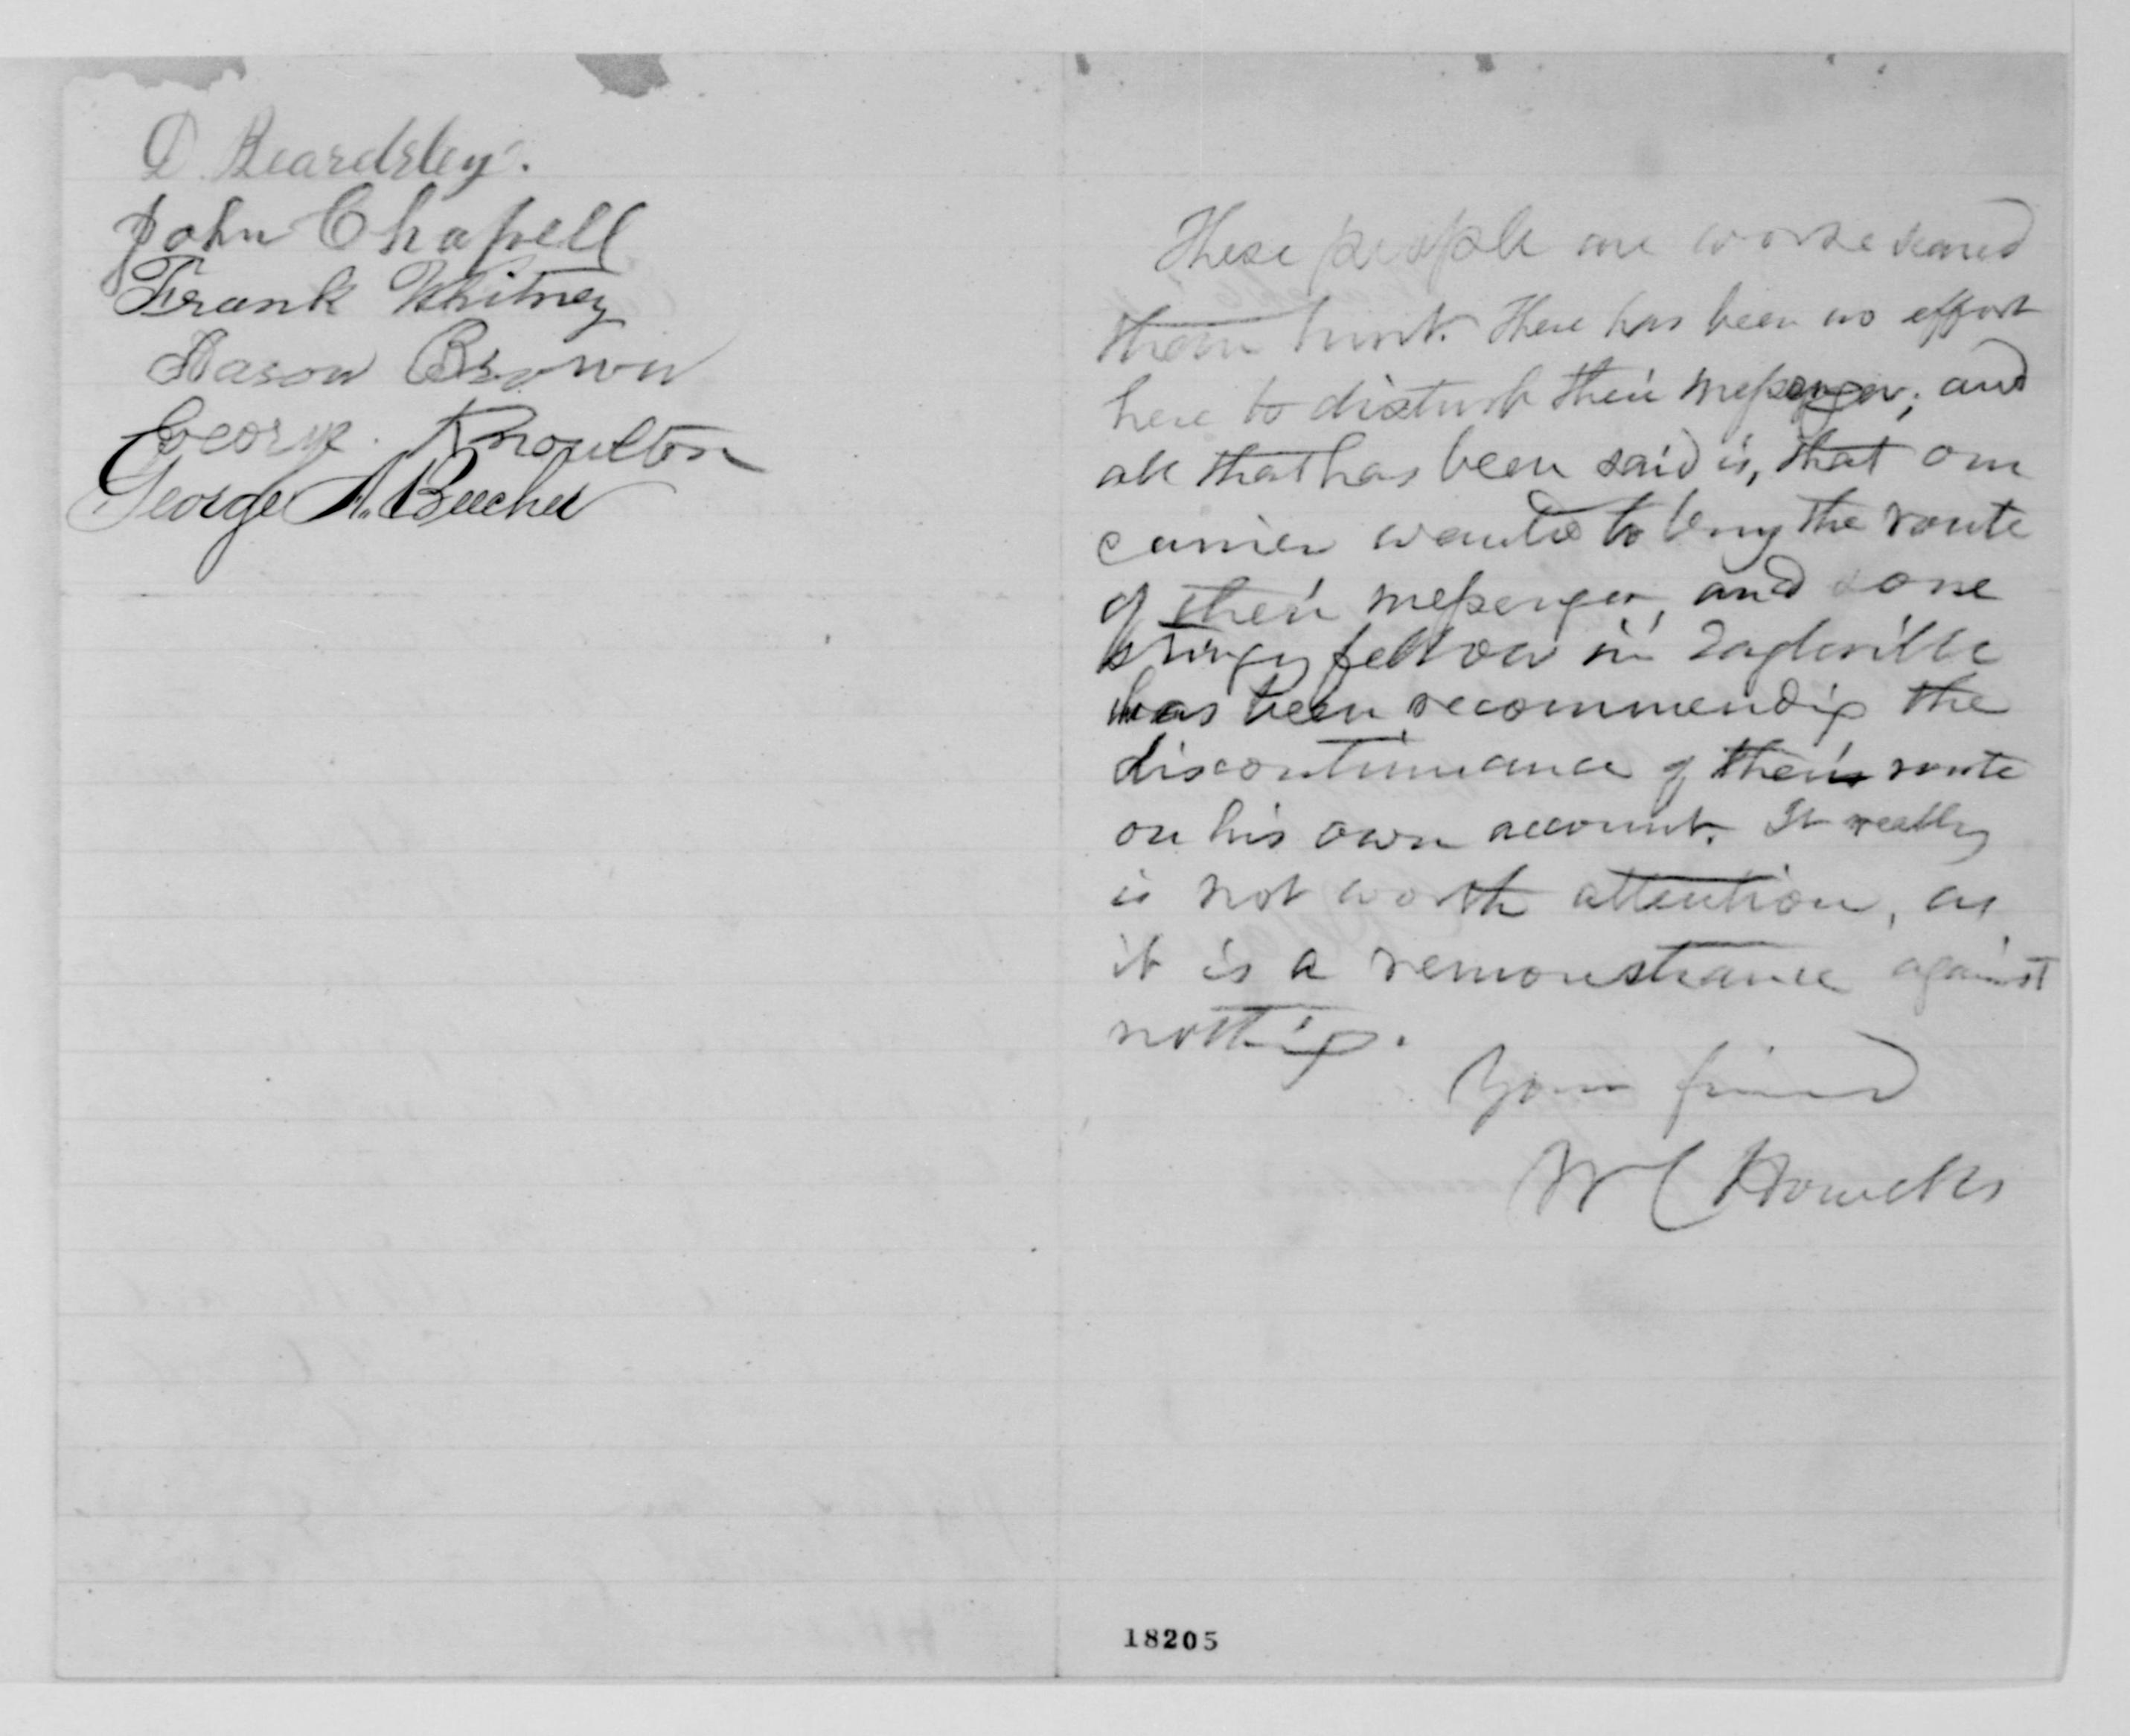 D. Beardsley.
John Chapell
Frank Whitney
Mason Brown
George Knoulton
George A. Beecher
These people are worse scared
than hurt. There has been no effort
here to disturb their messenger; and
all that has been said is, that our
carrier wanted to buy the route
of their messenger, and some
stingy fellow in Eagleville
has been recommending the
discontinuance of their route
on his own account. It really
is not worth attention, as
it is a remonstrance against
nothing.
Your friend
W C Howells
18205